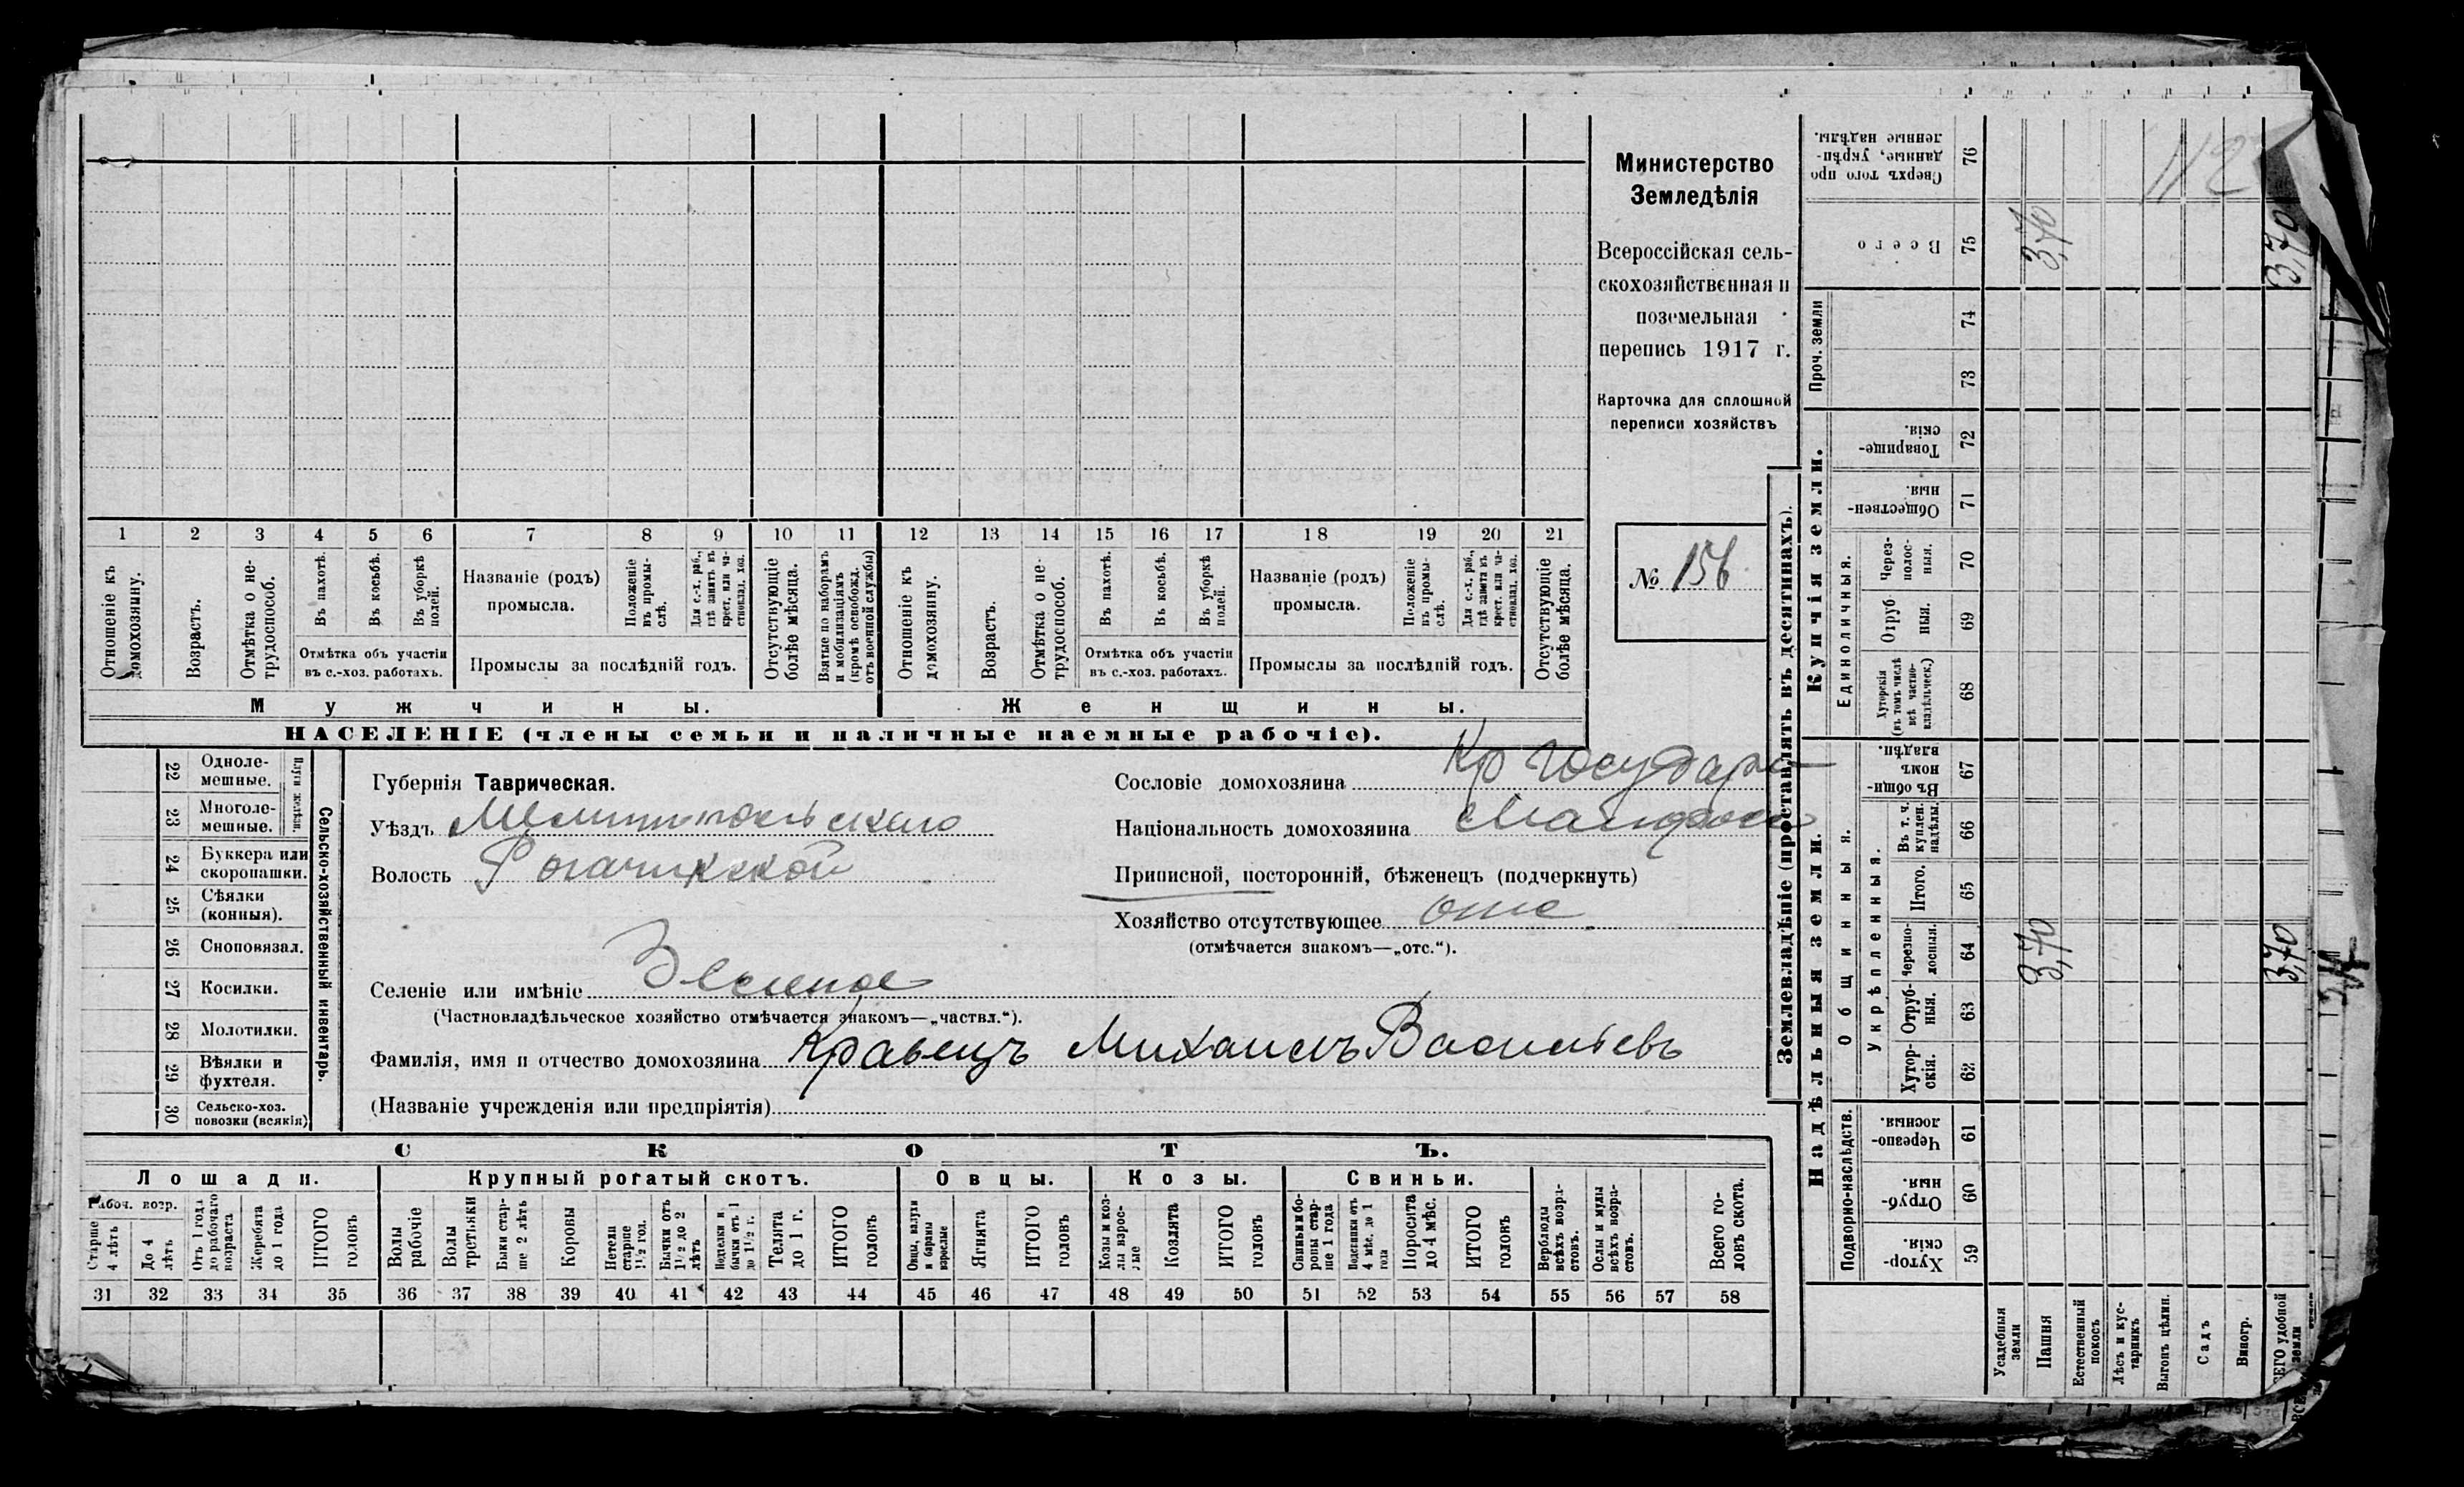 1 2 3 4 5 6 7 8 9 10 11 12 13 14 15 16 17 18 19 20 21
Отношеніе къ домохозяину.
Возрастъ.
Отмѣтка о не-трудоспособ.
Въ пахотѣ.
Въ косьбѣ.
Въ уборкѣ полей.
Отмѣтка объ участіи
въ с.-хоз. работахъ.
Названіе (родъ)
промысла.
Положеніе въ промы-слѣ.
Для с.-х. раб., гдѣ занятъ въ крест. или ча-стновлад. хоз.
Промыслы за послѣдній годъ.
Отсутствующіе болѣе мѣсяца.
Взятые по наборамъ и мобилизаціямъ (кромѣ освобожд. отъ военной службы)
Отношеніе къ домохозяину.
Возрастъ.
Отмѣтка о не-трудоспособ.
Въ пахотѣ.
Въ косьбѣ.
Въ уборкѣ полей.
Отмѣтка объ участіи
въ с.-хоз. работахъ.
Названіе (родъ)
промысла.
Положеніе въ промы-слѣ.
Для с.-х. раб., гдѣ занята въ крест. или ча-стновлад. хоз.
Промыслы за послѣдній годъ.
Отсутствующіе болѣе мѣсяца.
Мужчины.
Женщины.
НАСЕЛЕНІЕ (члены семьи и наличные наемные рабочіе).
Министерство
Земледѣлія
Всероссійская сель-
скохозяйственная и
поземельная
перепись 1917 г.
Карточка для сплошной
переписи хозяйствъ
№ 156
22 Одноле-мешные.
23 Многоле-мешные.
Плуги желѣзн.
24 Буккера или скоропашки.
25 Сѣялки (конныя).
26 Сноповязал.
27 Косилки.
28 Молотилки.
29 Вѣялки и фухтеля.
30 Сельско-хоз. повозки (всякія)
Сельско-хозяйственный инвентарь.
Губернія Таврическая.
Уѣздъ Мелитопольскаго
Волость Рогачикской
Сословіе домохозяина Кр Государс
Національность домохозяина Малорос
Приписной, посторонній, бѣженецъ (подчеркнуть)
Хозяйство отсутствующее отс
(отмѣчается знакомъ—„отс.“).
Селеніе или имѣніе Зеленое
(Частновладѣльческое хозяйство отмѣчается знакомъ—„частвл.“).
Фамилія, имя и отчество домохозяина Кравецъ Михаилъ Васильевъ
(Названіе учрежденія или предпріятія)
СКОТЪ.
Лошади. Крупный рогатый скотъ. Овцы. Козы. Свиньи.
Рабоч. возр.
Старше 4 лѣтъ
До 4 лѣтъ
Отъ 1 года до рабочаго возраста
Жеребята до 1 года
ИТОГО головъ
Волы рабочіе
Волы третьяки
Быки стар-ше 2 лѣтъ
Коровы
Нетели старше 1½ год.
Бычки отъ 1½ до 2 лѣтъ
Подтелки и бычки отъ 1 до 1½ г.
Телята до 1 г.
ИТОГО головъ
Овцы, валухи и бараны взрослые
Ягнята
ИТОГО головъ
Козы и коз-лы взрос-лые
Козлята
ИТОГО головъ
Свиньи и бо-ровы стар-ше 1 года
Подсвинки отъ 4 мѣс. до 1 года
Поросята до 4 мѣс.
ИТОГО головъ
Верблюды всѣхъ возра-стовъ.
Ослы и мулы всѣхъ возра-стовъ.
Всего го-ловъ скота.
31 32 33 34 35 36 37 38 39 40 41 42 43 44 45 46 47 48 49 50 51 52 53 54 55 56 57 58
Землевладѣніе (проставлять въ десятинахъ).
Купчія земли.
Надѣльныя земли.
Сверхъ того про-данные, укрѣп-ленные надѣлы. 76
112
Всего 75 3,70 3,70
Проч. земли 74 73
Товарище-скія. 72
Обществен-ныя. 71
Единоличныя.
Через-полос-ныя. 70
Отруб-ныя. 69
Хуторскія (въ томъ числѣ всѣ частно-владѣльческ.) 68
Общинныя.
Въ общи-номъ владѣн. 67
Укрѣпленныя.
Въ т. ч. куплен. надѣлы. 66
Итого. 65
Черезпо-лосныя. 64 3,70 3,70
Отруб-ныя. 63
Хутор-скія. 62
Подворно-наслѣдств.
Черезпо-лосныя. 61
Отруб-ныя. 60
Хутор-скія. 59
Усадебныя земли
Пашня
Естественный покосъ
Лѣсъ и кус-тарникъ
Выгонъ цѣлин.
Садъ
Виногр.
ВСЕГО удобной земли